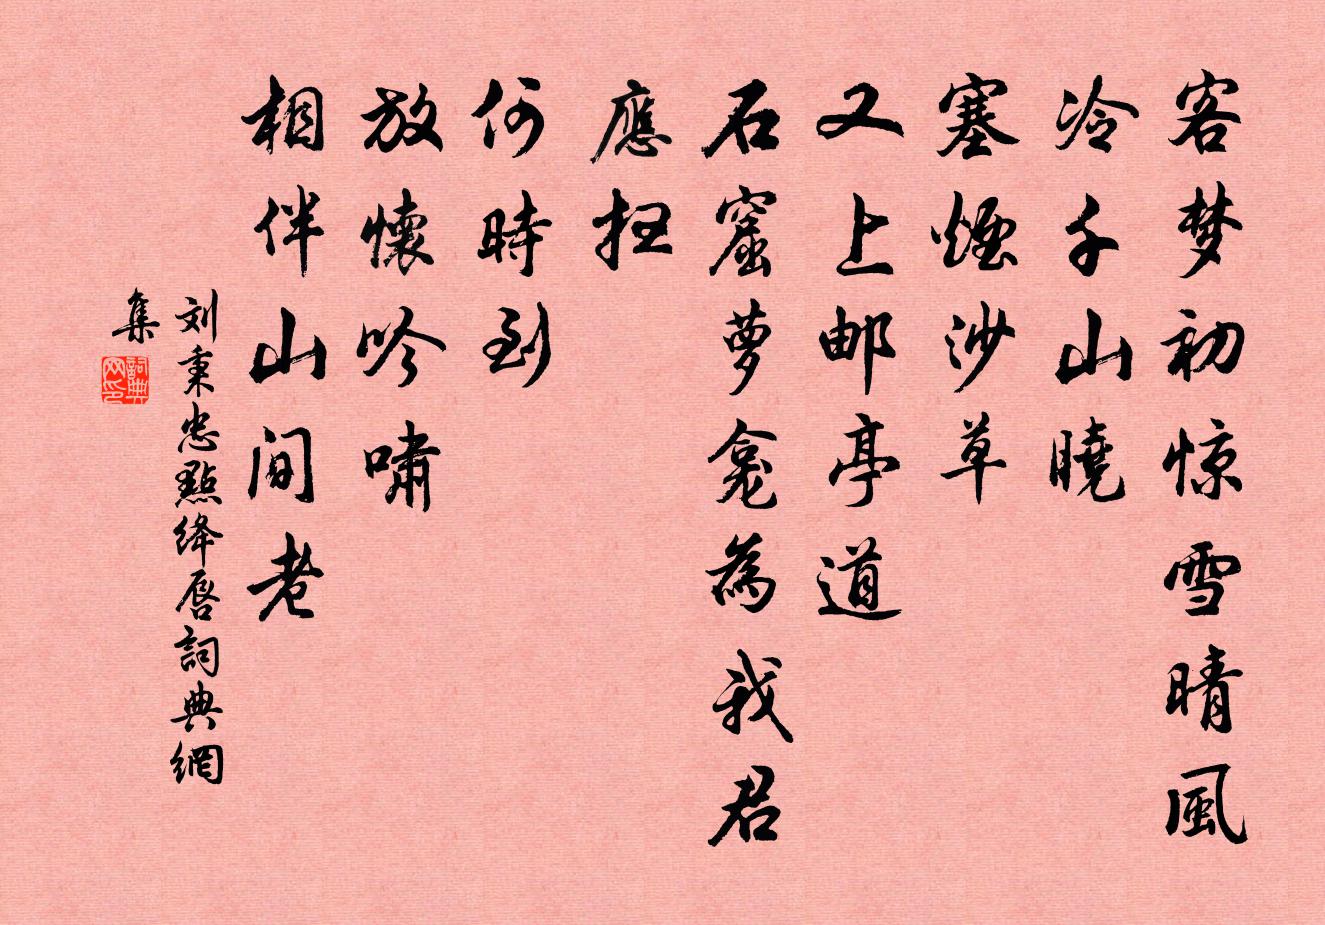 客梦初惊雪晴風
冷千山曉
塞煙沙草
又上邮亭道
石窟萝龛為我君
應扫
何時到
放懷吟嘯
相伴山间老
刘秉忠點绛唇詞典網
集
詞典网印